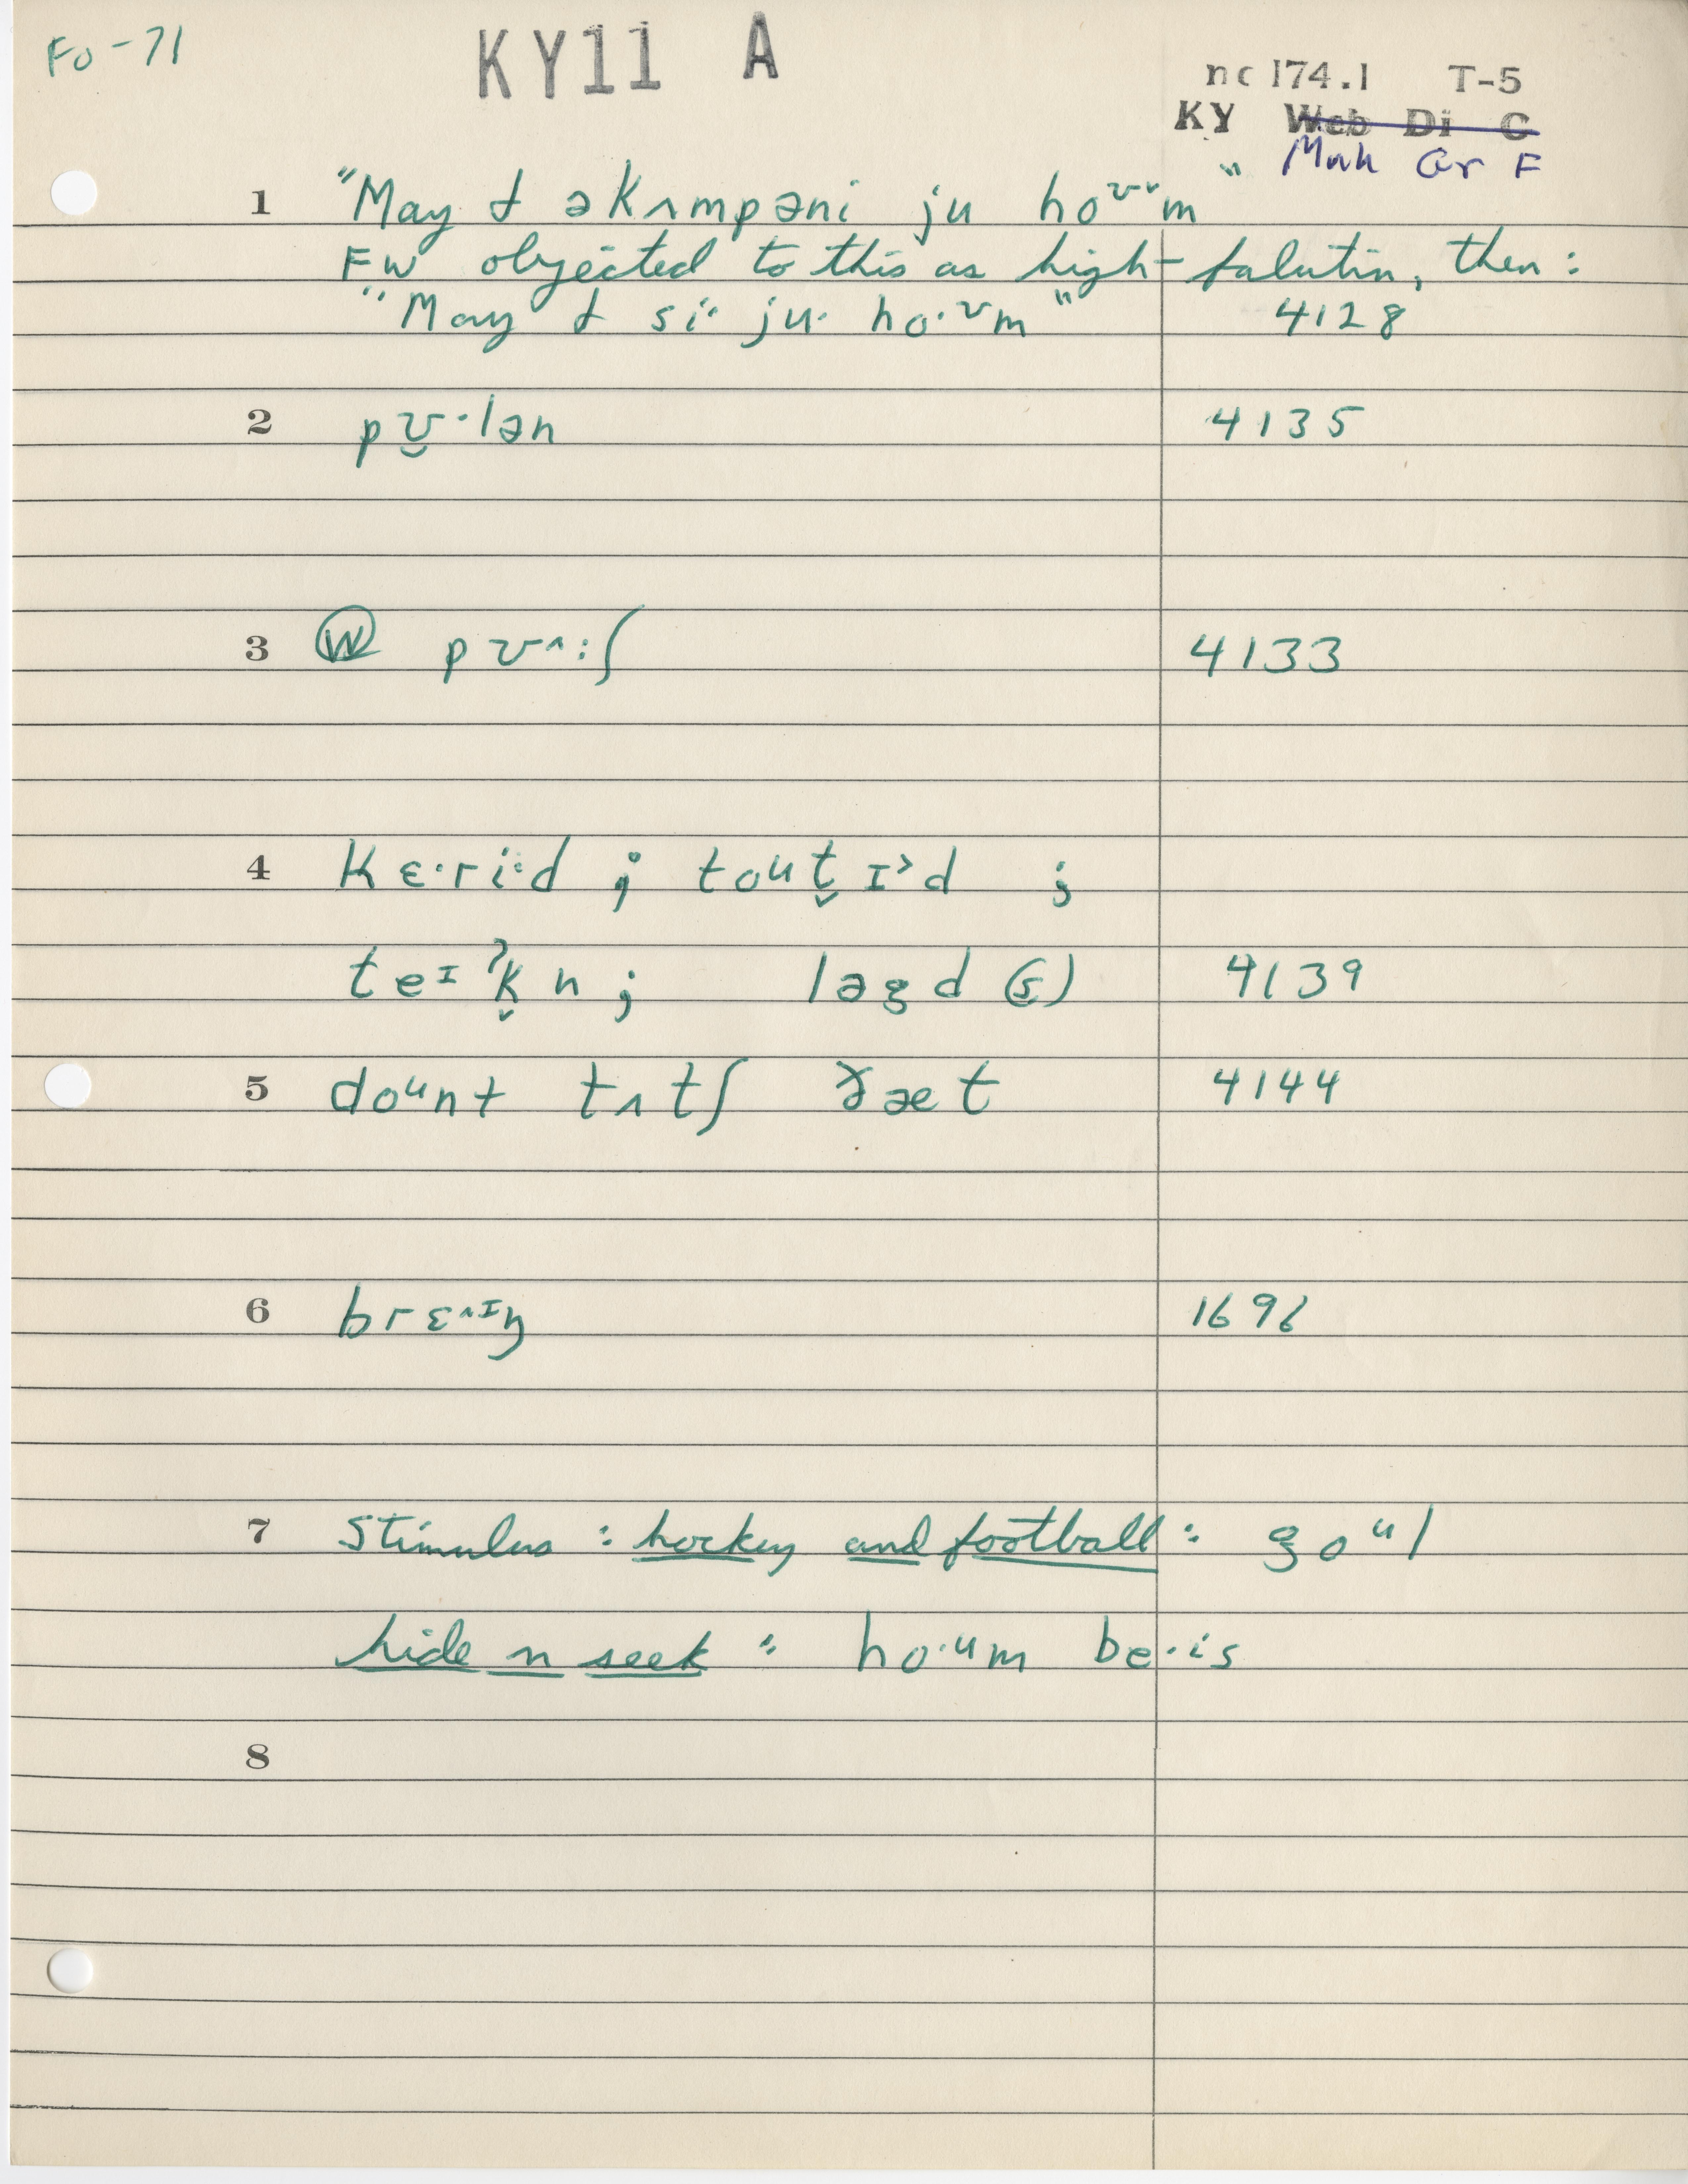 Fo-71
KY11 A
nc 174.1 T-5
KY Web Di C
Muh Gr F
1 "May I əkʌmpəni ju hoᶷᵛm"
FW objected to this as high-falutin, then:
"May I siˑ juˑ hoˑᶷm" 4128
2 pʊ̬ˑlən 4135
3 Ⓦ pʊ^:ʃ 4133
4 kɛˑriˑd ; toᵘt̬ɪ>d ;
teᶦˀk̬n ; ləgd (s) 4139
5 doᵘnt tʌtʃ ðæt 4144
6 brɛ^ɪŋ 1696
7 Stimulus : hockey and football : goᵘl
hide n seek : hoˑᵘm beˑis
8